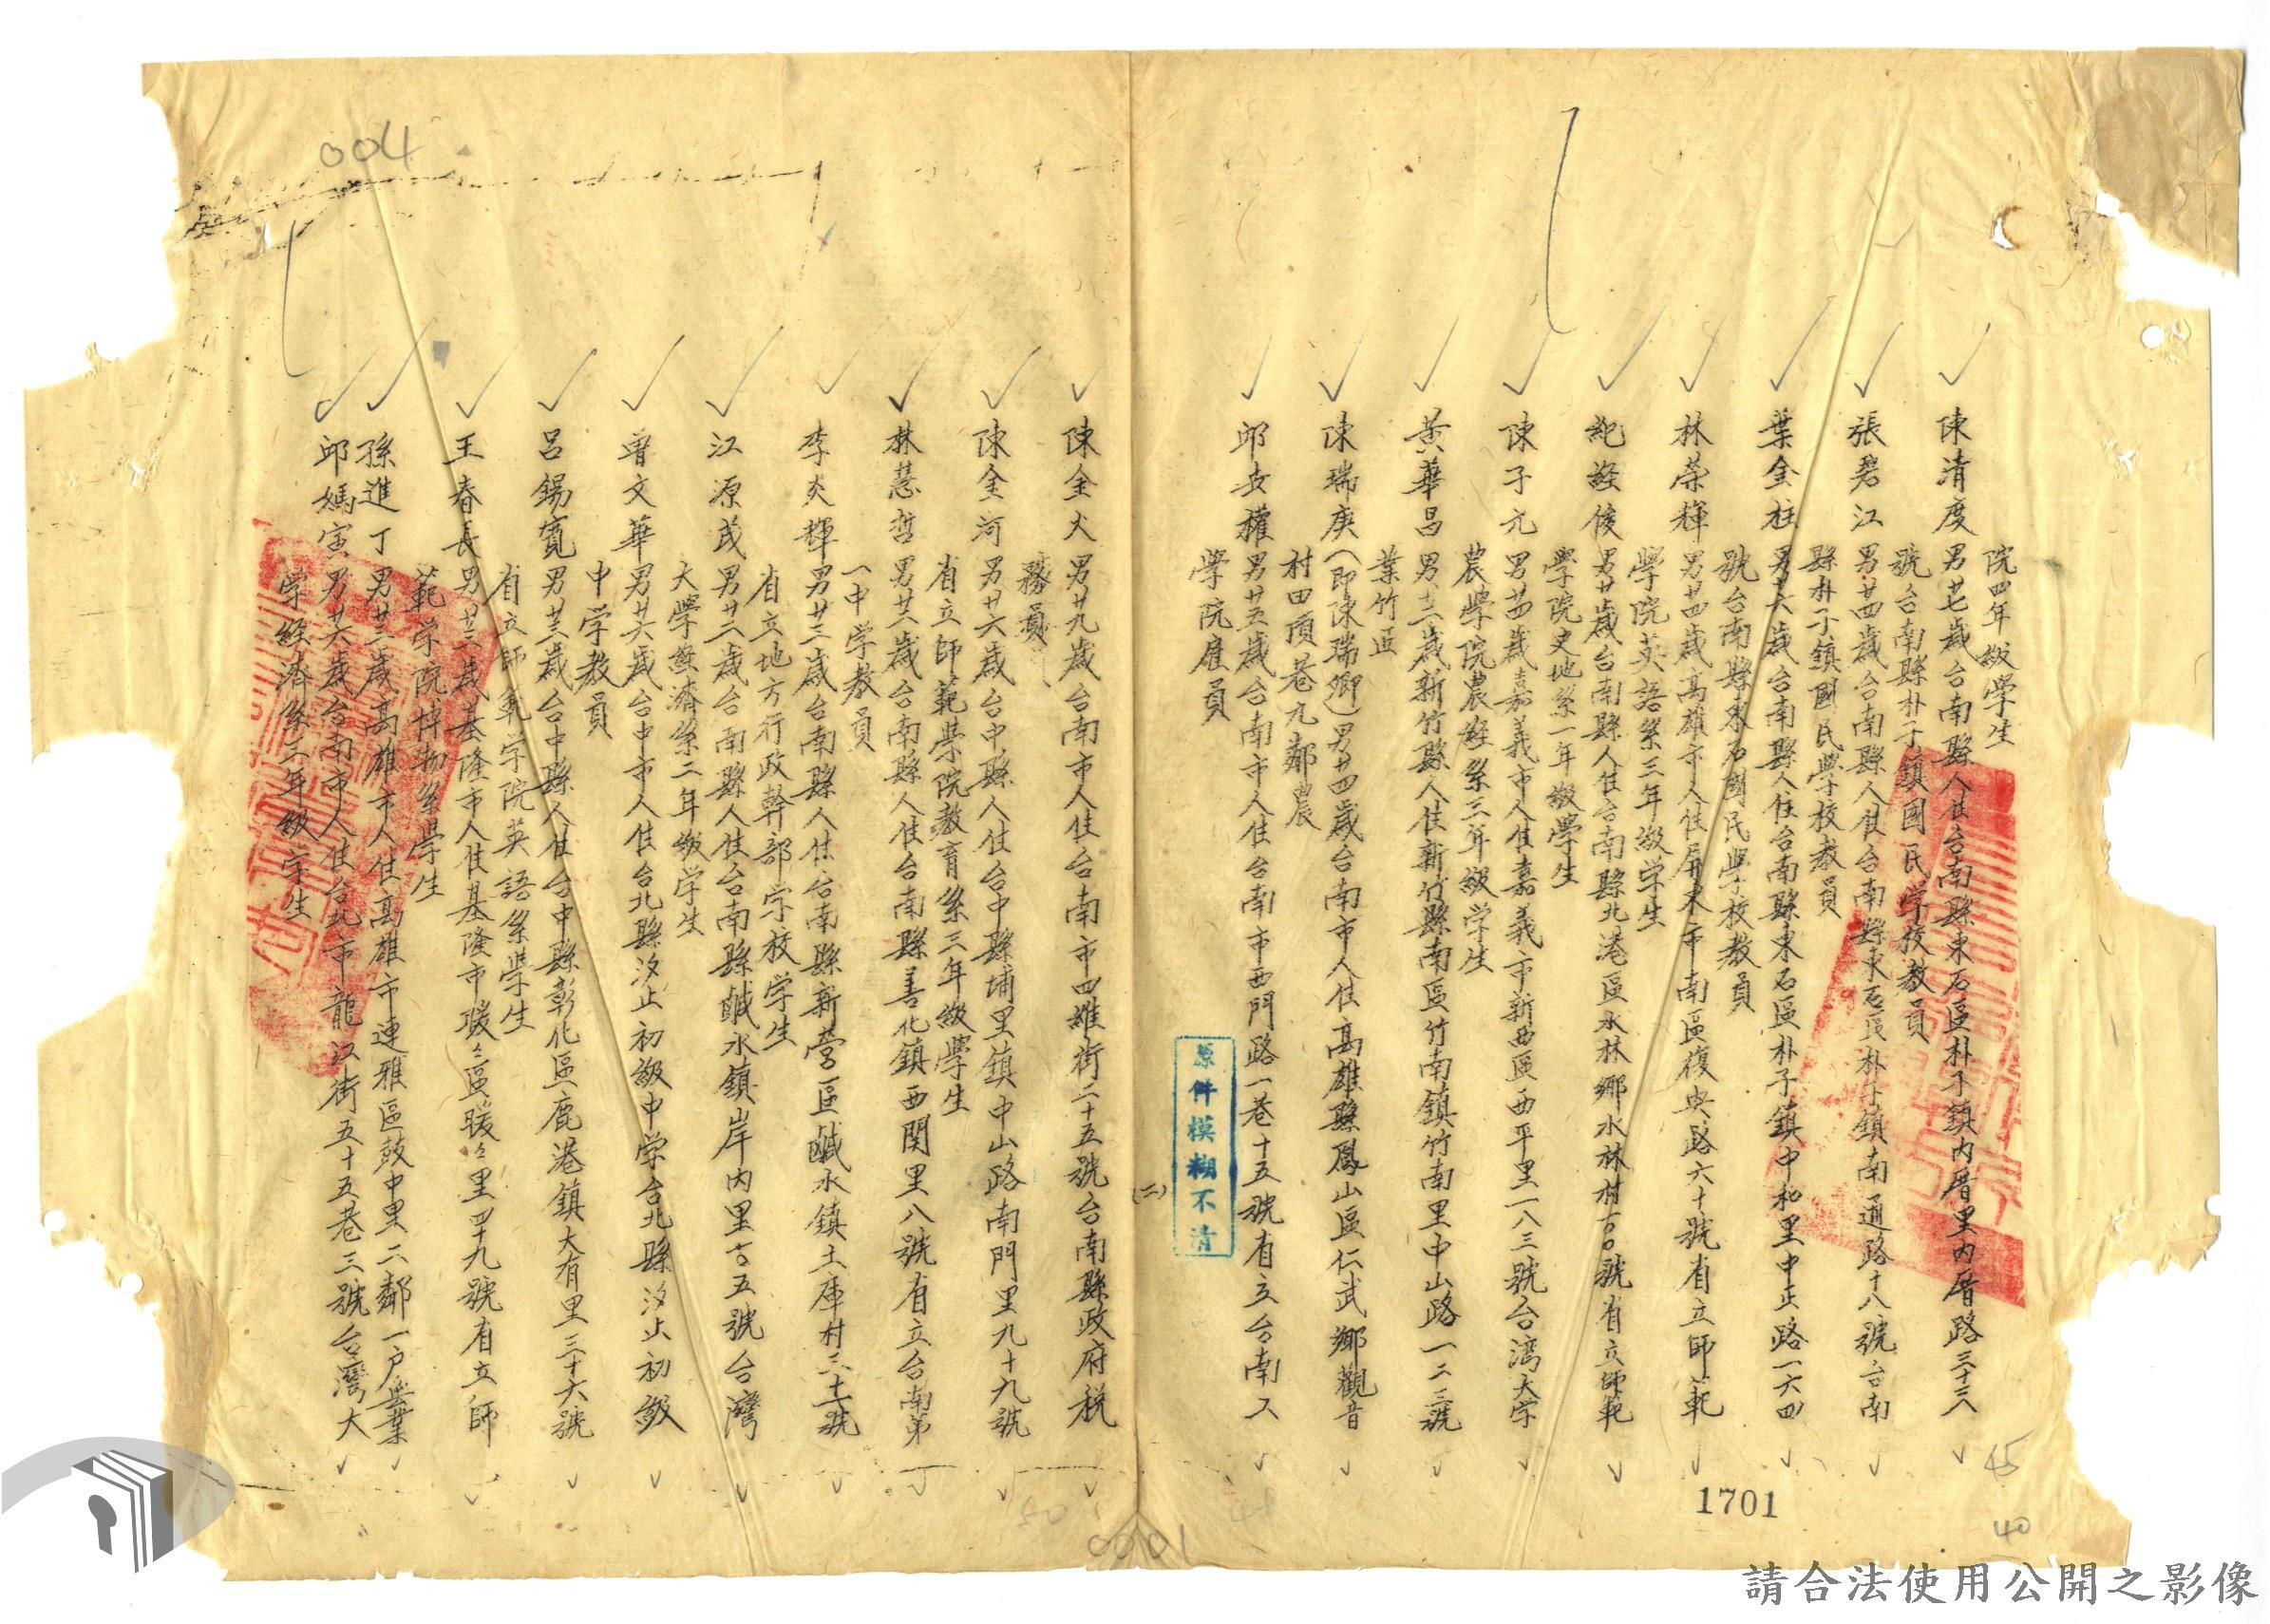 004
院四年級學生
陳清度男廿七歲台南縣人住台南縣東石區朴子鎮內厝里內厝路三十三
號台南縣朴子鎮國民学校教員
張碧江男廿四歲台南縣人住台南縣東石區朴子鎮南通路十八號台南
縣朴子鎮國民學校教員
葉金柱男廿六歲台南縣人住台南縣東石區朴子鎮中和里中正路一六四
號台南縣東石國民學校教員
林荣輝男廿四歲高雄市人住屏東市南區復興路六十號省立師範
學院英語系三年級学生
紀經俊男廿歲台南縣人住台南縣北港區水林鄉水林村號省立師範
學院史地系一年級學生
陳子元男廿四歲嘉義市人住嘉義市新西區西平里一八三號台湾大学
農學院農經系三年級学生
黃華昌男廿二歲新竹縣人住新竹縣南區竹南鎮竹南里中山路一二三號
業竹
陳瑞庚(即陳瑞卿)男廿四歲台南市人住高雄縣鳳山區仁武鄉觀音
村田頂巷九鄰農
邱女權男廿五歲台南市人住台南市西門路一巷十五號省立台南工
學院雇員
原件模糊不清
(二)
陳金火男廿九歲台南市人住台南市四維街二十五號台南縣政府税
務員
陳金河男廿六歲台中縣人住台中縣埔里鎮中山路南門里九十九號
省立師範學院教育系三年級學生
林慧哲男廿六歲台南縣人住台南縣善化鎮西関里八號省立台南第
一中学教員
李炎輝男廿三歲台南縣人住台南縣新營區鹹水鎮土庫村三十號
省立地方行政幹部学校学生
江源茂男廿二歲台南縣人住台南縣鹹水鎮岸内里五號台灣
大學經濟系二年級学生
曾文華男廿六歲台中市人住台北縣汐止初級中学台北縣汐止初級
中学教員
呂錫寬男廿三歲台中縣人住台中縣彰化區鹿港鎮大有里三十六號
省立師範学院英語系學生
王春長男廿三歲基隆市人住基隆市暖々區暖々里四十九號省立師
範学院博物系學生
孫進丁男廿三歲高雄市人住高雄市連雅區鼓中里二鄰一户無業
邱媽寅男廿六歲台南市人住台北市龍江街五十五巷三號台灣大
学経濟系三年級学生
1701
45
40
50
0001
請合法使用公開之影像